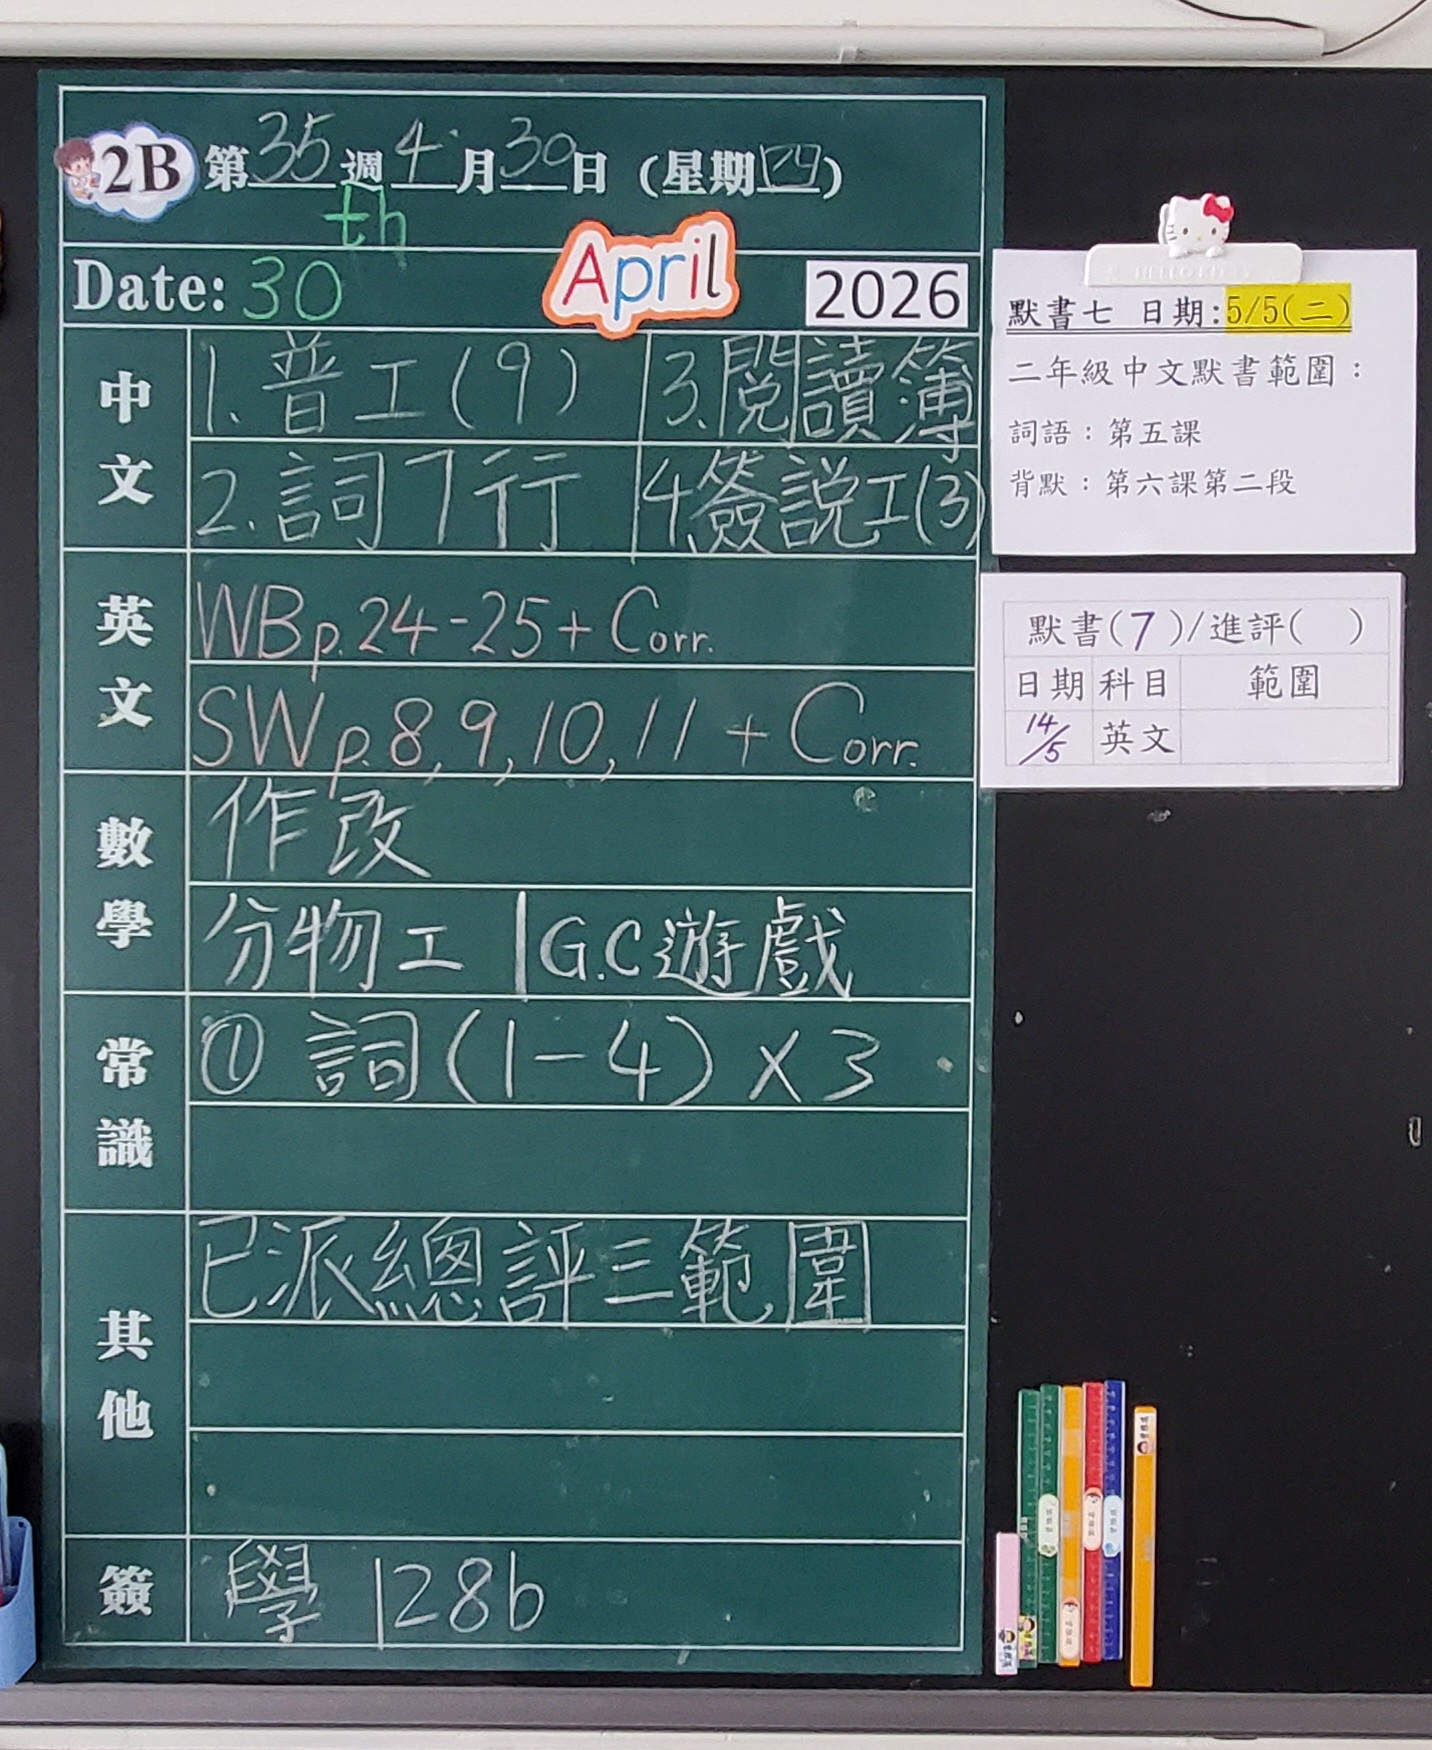 2B 第35週4月30日（星期四）
Date: 30th April 2026
中文
1. 普工(9) 3.閱讀簿
2. 詞7行 4.簽説工(3)
英文
WB p.24-25 + Corr.
SW p.8, 9, 10, 11 + Corr.
數學
作改
分物工 | G.C遊戲
常識
① 詞(1-4)×3
其他
已派總評三範圍
簽
學 128b
默書七 日期:5/5(二)
二年級中文默書範圍：
詞語：第五課
背默：第六課第二段
默書(7)/進評( )
日期 科目 範圍
14/5 英文